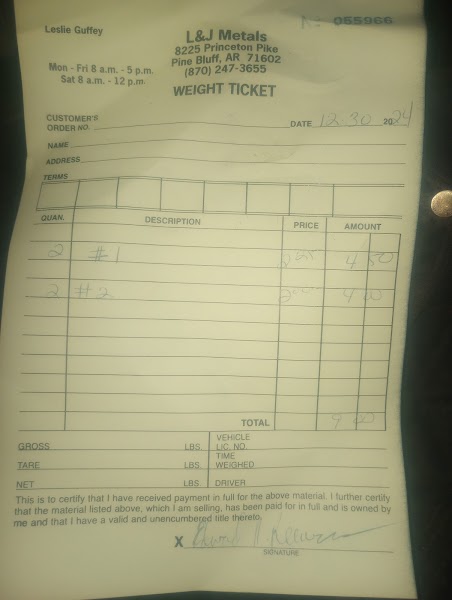 Leslie Guffey
No 055966
L&J Metals
8225 Princeton Pike
Pine Bluff, AR 71602
(870) 247-3655
Mon - Fri 8 a.m. - 5 p.m.
Sat 8 a.m. - 12 p.m.
WEIGHT TICKET
CUSTOMER'S
ORDER NO.
DATE 12.30 2024
NAME
ADDRESS
TERMS
QUAN. DESCRIPTION PRICE AMOUNT
2 #1 4 50
2 #2 4 00
TOTAL 9 00
GROSS LBS. VEHICLE LIC. NO.
TARE LBS. TIME WEIGHED
NET LBS. DRIVER
This is to certify that I have received payment in full for the above material. I further certify
that the material listed above, which I am selling, has been paid for in full and is owned by
me and that I have a valid and unencumbered title thereto.
X
SIGNATURE